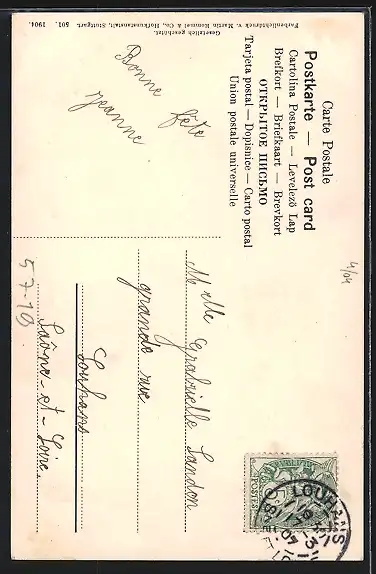 Carte Postale
Postkarte — Post card
Cartolina Postale — Levelező Lap
Brefkort — Briefkaart — Brevkort
ОТКРЫТОЕ ПИСЬМО
Tarjeta postal — Dopisnice — Carto postal
Union postale universelle
Bonne fête
Jeanne
Gesetzlich geschützt.
Farbenlichtdruck v. Martin Rommel & Co., Hofkunstanstalt, Stuttgart. 501. 1904.
Melle Gabrielle Landon
grande rue
Louhans
Saône-et-Loire.
57-19
4/04
POSTES
LOUHANS